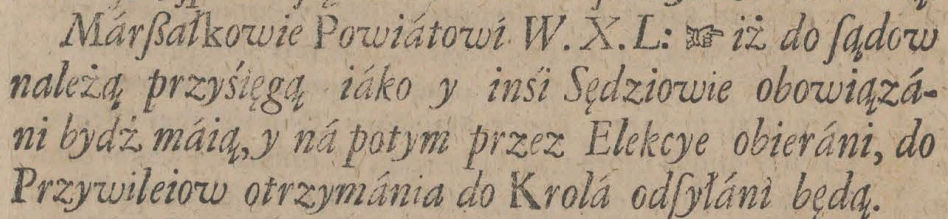 Márßałkowie Powiátowi W. X. L: ☞ iż do ſądow
należą przyśięgą iáko y inśi Sędziowie obowiązá-
ni bydź máią, y ná potym przez Elekcye obieráni, do
Przywileiow otrzymánia do Krolá odſyłáni będą.